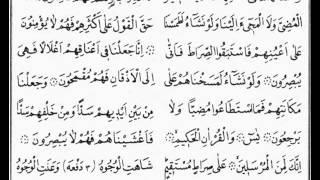 الْمُضِيَّ وَلَا الْمَجِيَّ إِلَيْنَا وَلَوْ نَشَاءُ لَطَمَسْنَا
عَلَىٰ أَعْيُنِهِمْ فَاسْتَبَقُوا الصِّرَاطَ فَأَنَّىٰ
يُبْصِرُونَ ۞ وَلَوْ نَشَاءُ لَمَسَخْنَاهُمْ عَلَىٰ
مَكَانَتِهِمْ فَمَا اسْتَطَاعُوا مُضِيًّا وَلَا
يَرْجِعُونَ ۞ يٰسٓ ۞ وَالْقُرْآنِ الْحَكِيمِ ۞
إِنَّكَ لَمِنَ الْمُرْسَلِينَ ۞ عَلَىٰ صِرَاطٍ مُسْتَقِيمٍ
حَقَّ الْقَوْلُ عَلَىٰ أَكْثَرِهِمْ فَهُمْ لَا يُؤْمِنُونَ
۞ إِنَّا جَعَلْنَا فِي أَعْنَاقِهِمْ أَغْلَالًا فَهِيَ
إِلَى الْأَذْقَانِ فَهُمْ مُقْمَحُونَ ۞ وَجَعَلْنَا
مِنْ بَيْنِ أَيْدِيهِمْ سَدًّا وَمِنْ خَلْفِهِمْ سَدًّا
فَأَغْشَيْنَاهُمْ فَهُمْ لَا يُبْصِرُونَ ۞
شَاهَتِ الْوُجُوهُ (٣ دفعه) وَعَنَتِ الْوُجُوهُ